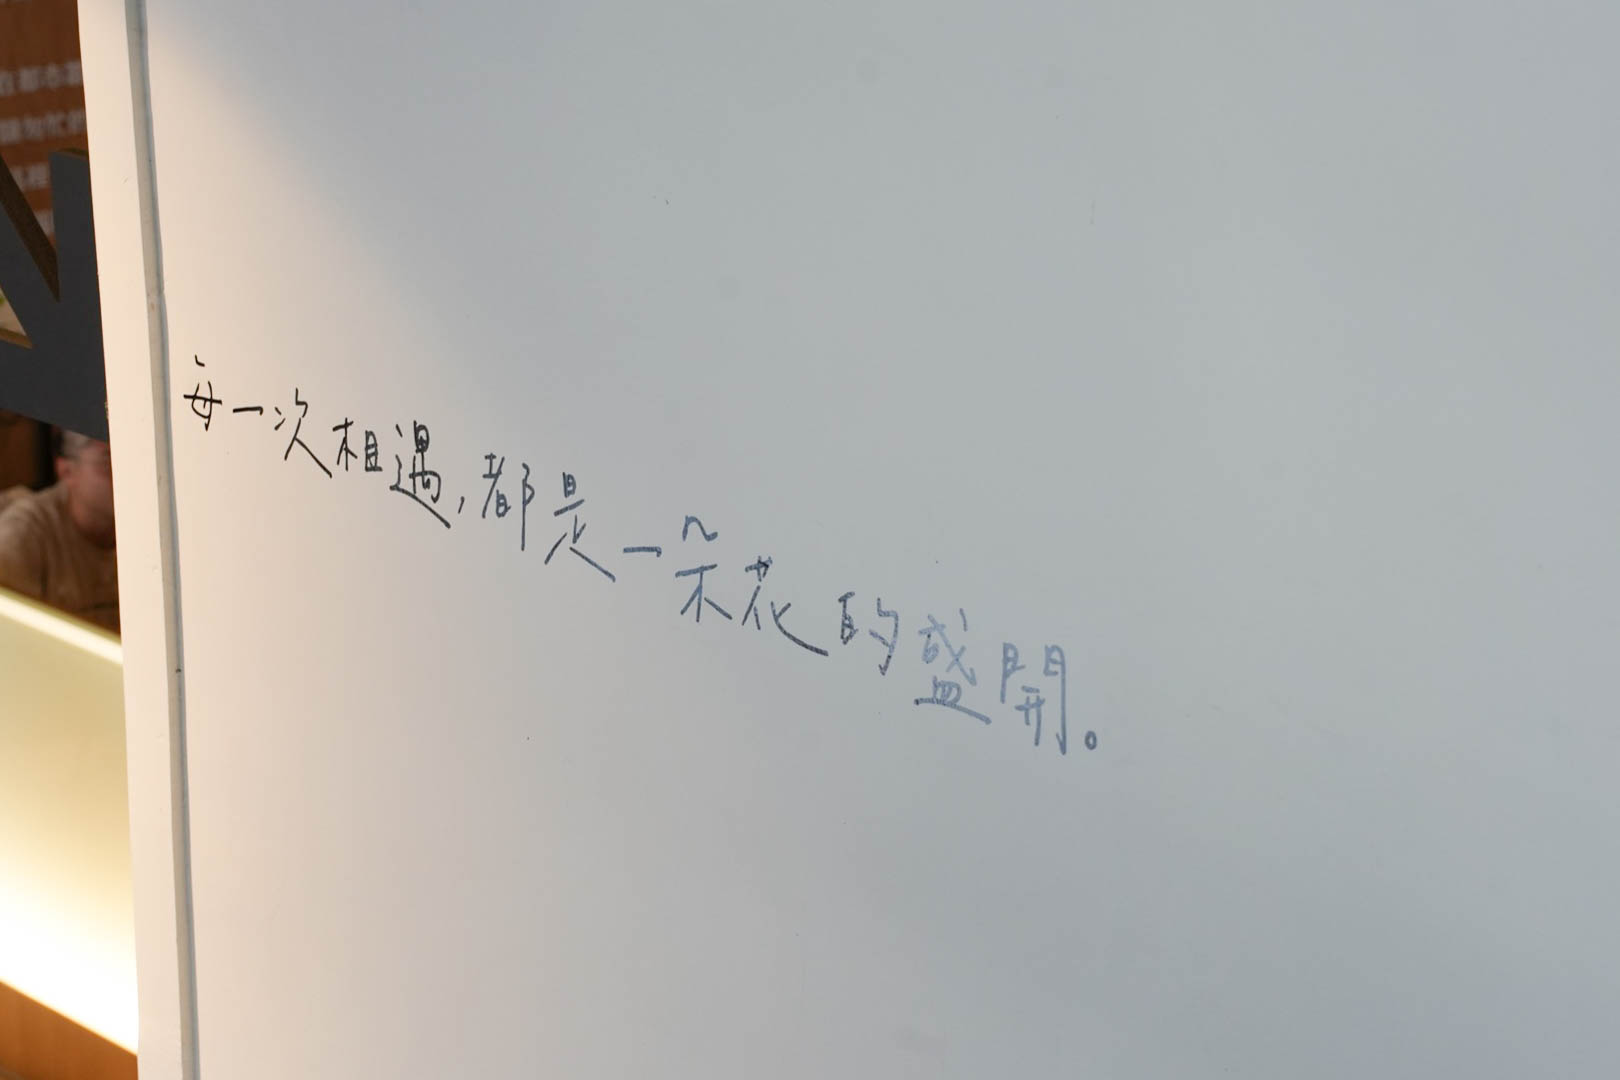 每一次相遇,都是一朵花的盛開。